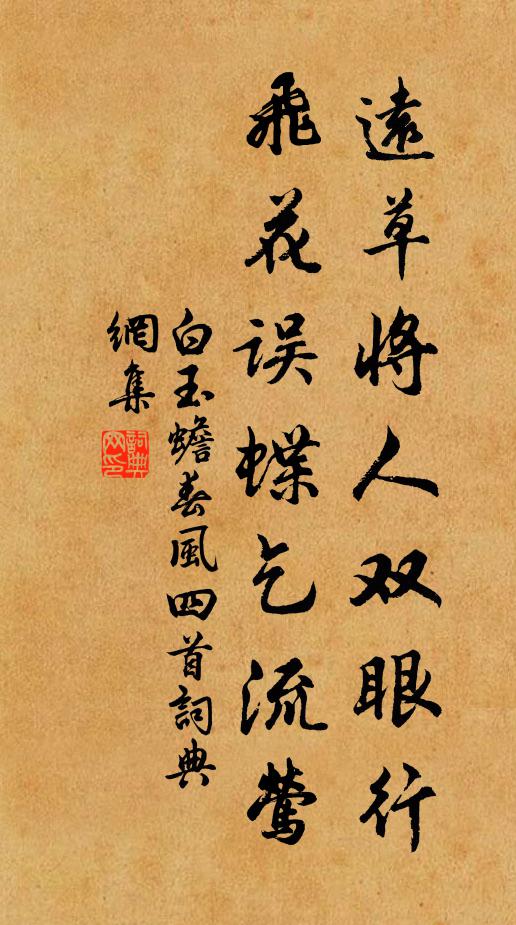 遠草将人双眼行
飛花误蝶乞流莺
白玉蟾春風四首詞典
網集
詞典
网印